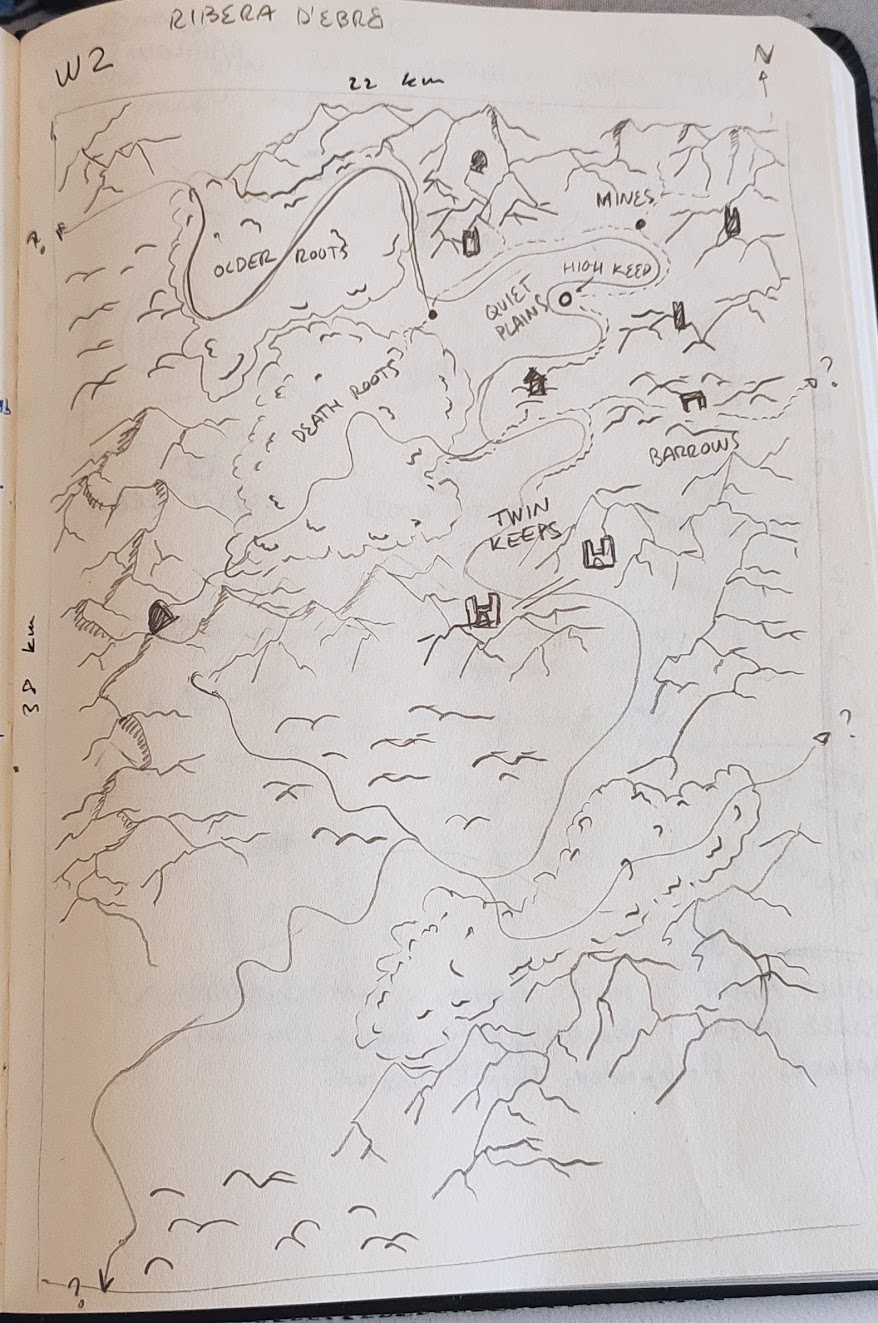 RIBERA D'EBRE
W2
22 km
N
?
MINES
OLDER ROOTS
HIGH KEEP
QUIET
PLAINS
?
DEATH ROOTS
BARROWS
TWIN
KEEPS
38 km
?
?